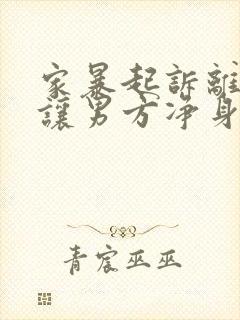 家暴起訴離
讓男方净身
青宸巫巫